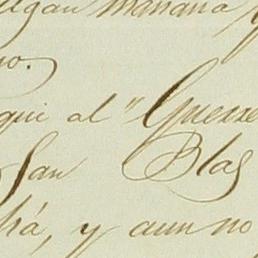 mañana y
no.
aqui al "Guerre
San Blas
há, y aun no